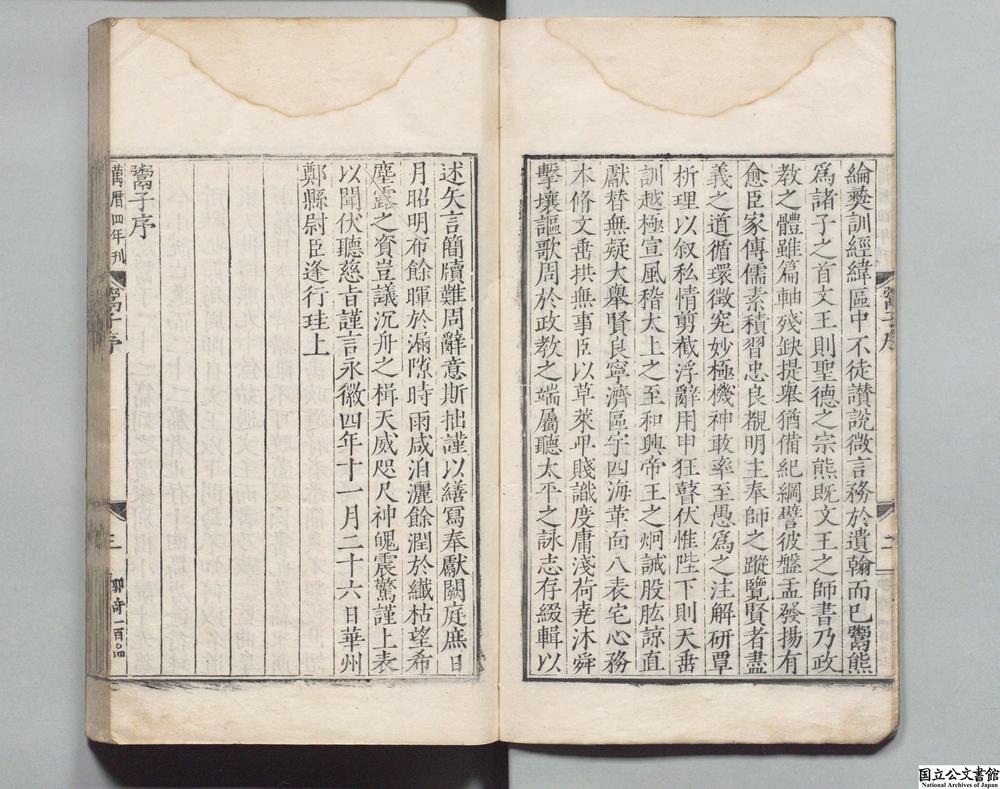 綸彜訓經緯區中不徒讃說微言務於遺翰而已鬻熊
爲諸子之首文王則聖德之宗熊旣文王之師書乃政
教之體雖篇軸殘缺提舉猶備紀綱譬彼盤盂發揚有
愈臣家傳儒素積習忠良覩明主奉師之蹤覽賢者盡
義之道循環徵究妙極機神敢率至愚爲之注解研覃
析理以叙私情剪截浮辭用申狂瞽伏惟陛下則天垂
訓越極宣風稽太上之至和興帝王之炯誡股肱諒直
獻替無疑大舉賢良寧濟區宇四海革面八表宅心務
本脩文垂拱無事臣以草萊卑賤識度庸淺荷尭沐舜
擊壤謳歌周於政教之端屬聽太平之詠志存綴輯以
述矢言簡牘難周辭意斯拙謹以繕寫奉獻闕庭庶日
月昭明布餘暉於漏隙時雨咸洎灑餘潤於纖枯望希
塵露之資豈議沉舟之楫天威咫尺神魄震驚謹上表
以聞伏聽慈旨謹言永徽四年十一月二十六日華州
鄭縣尉臣逢行珪上
鬻子序
萬曆四年刊
鬻子序
三
郭奇一百〇四
国立公文書館
National Archives of Japan